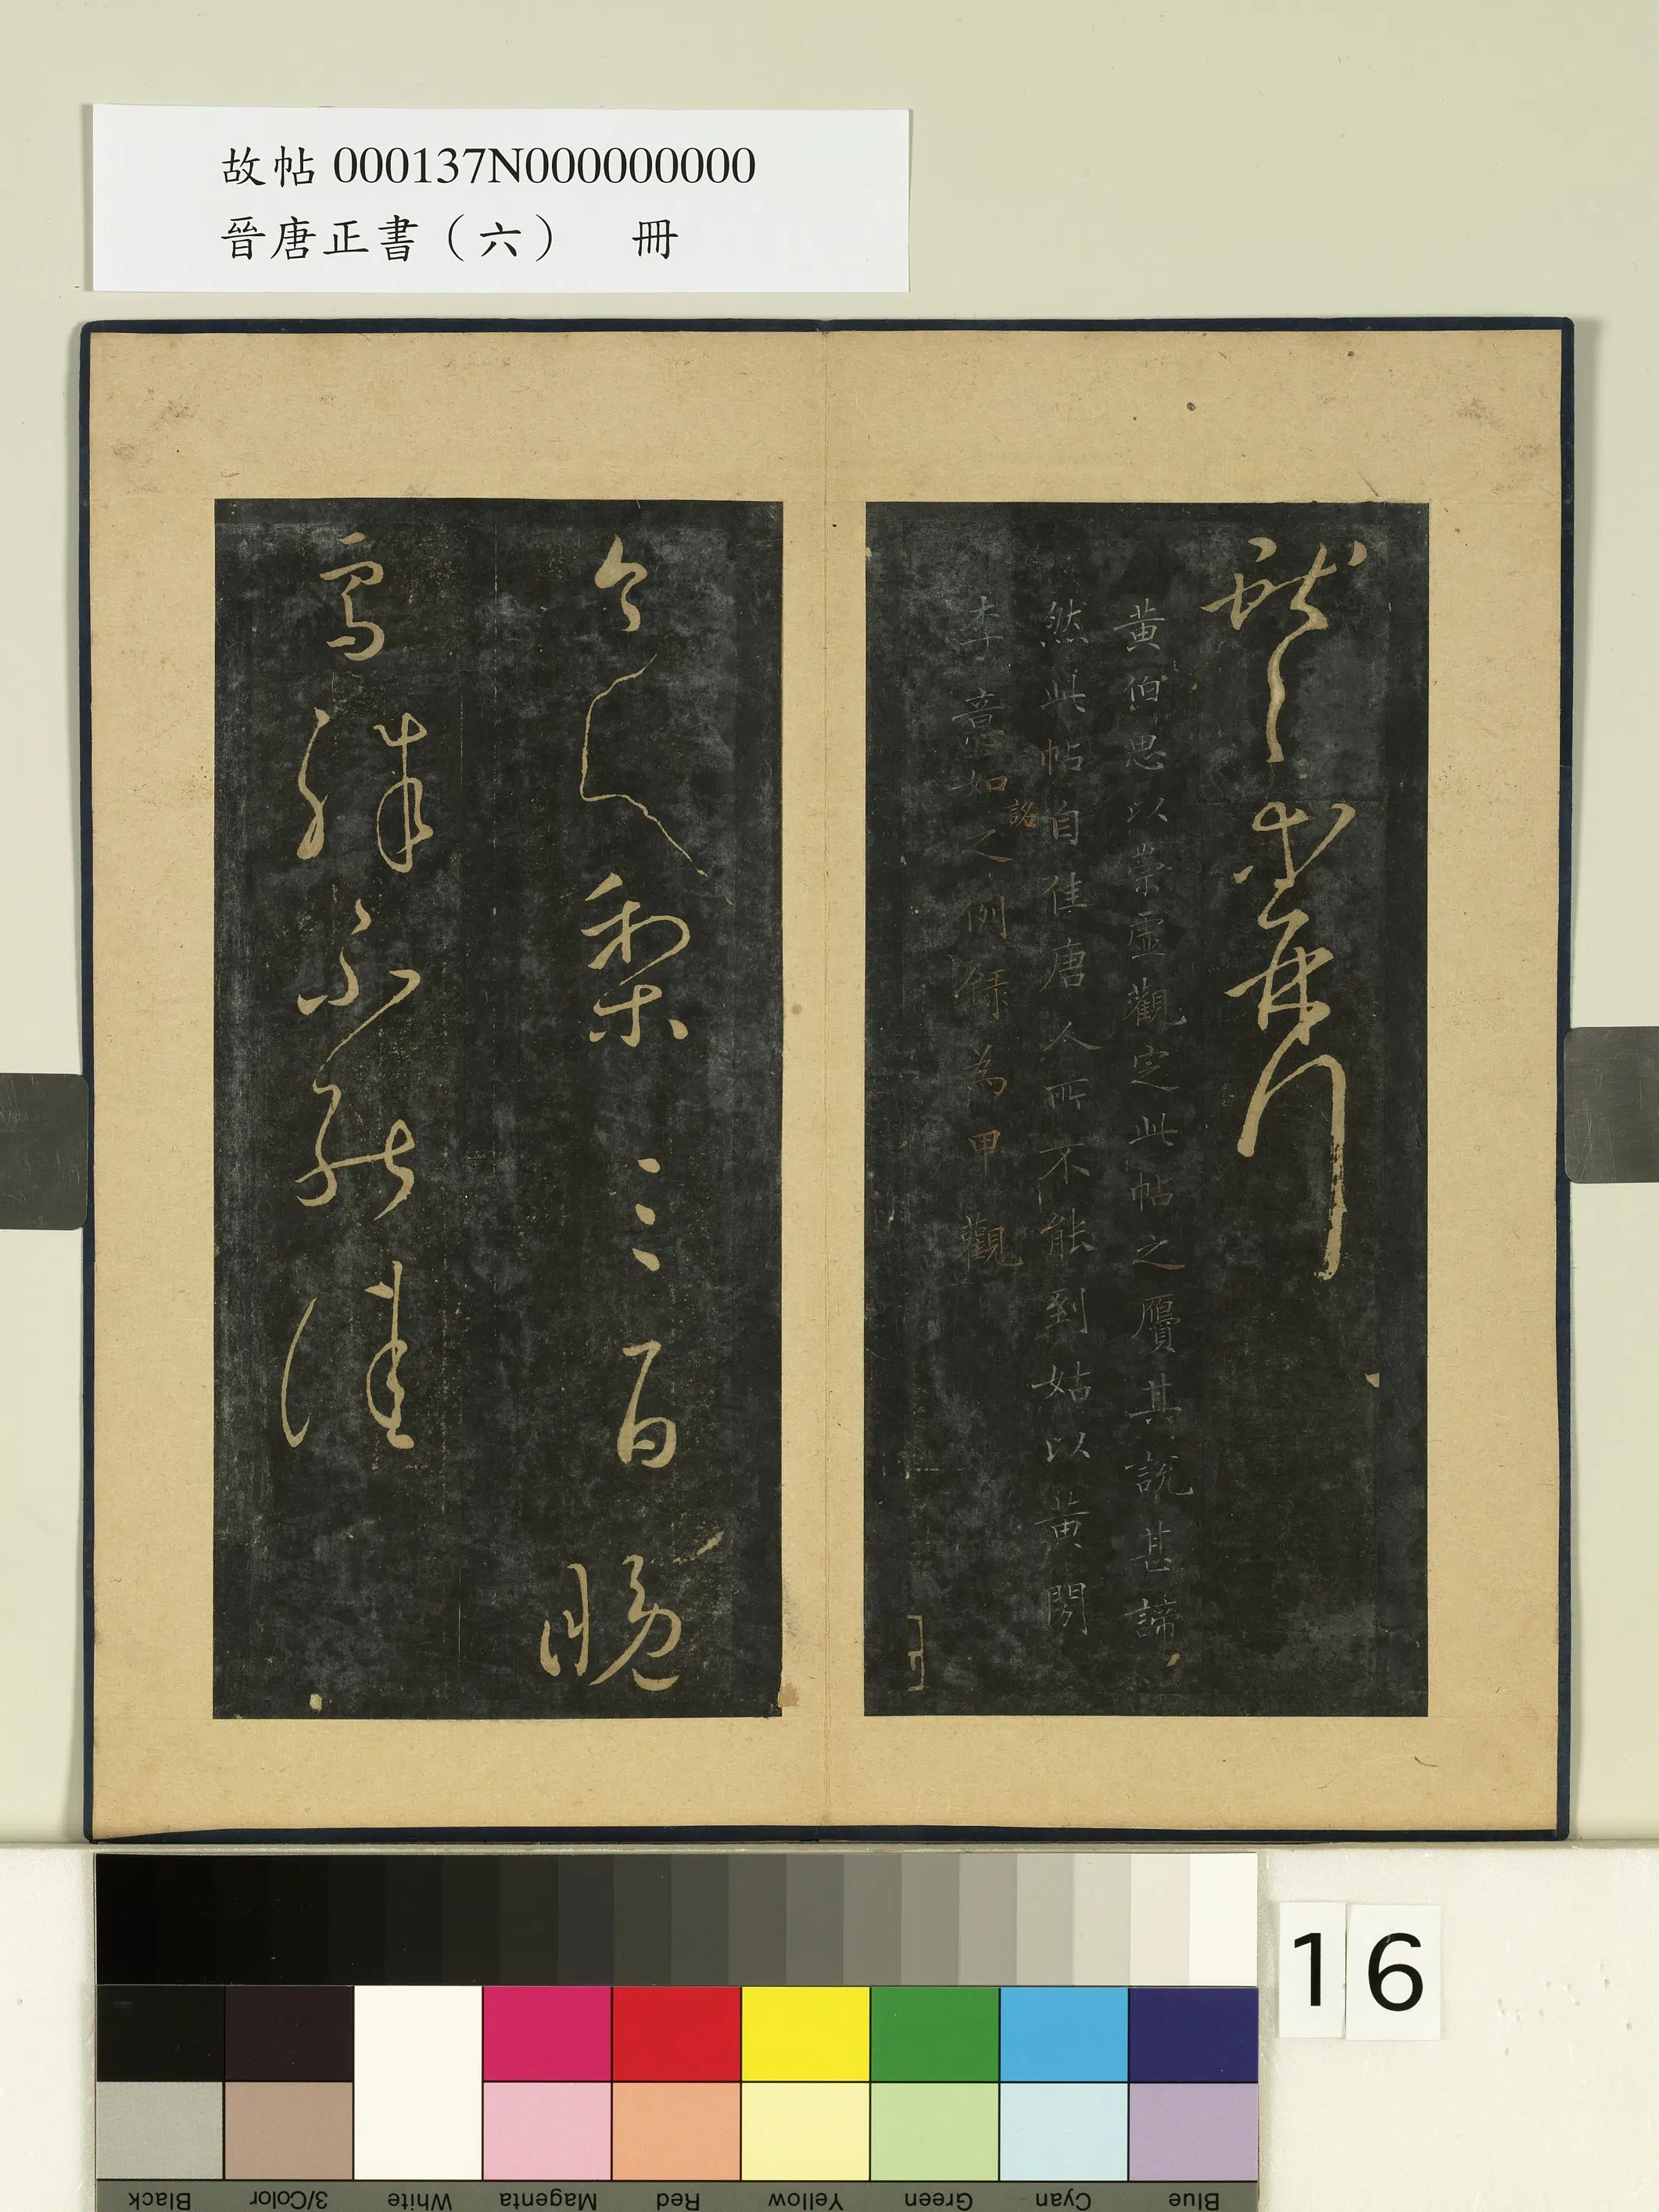 故帖 000137N000000000
晉唐正書（六） 冊
獻之 再拜
黃伯思以崇虛觀定此帖之贗其說甚諦
然此帖自佳唐人所不能到姑以黃
詒
李意如之例錄為甲觀
今送梨三百晚
雪殊不能佳
16
Black 3/Color White Magenta Red Yellow Green Cyan Blue